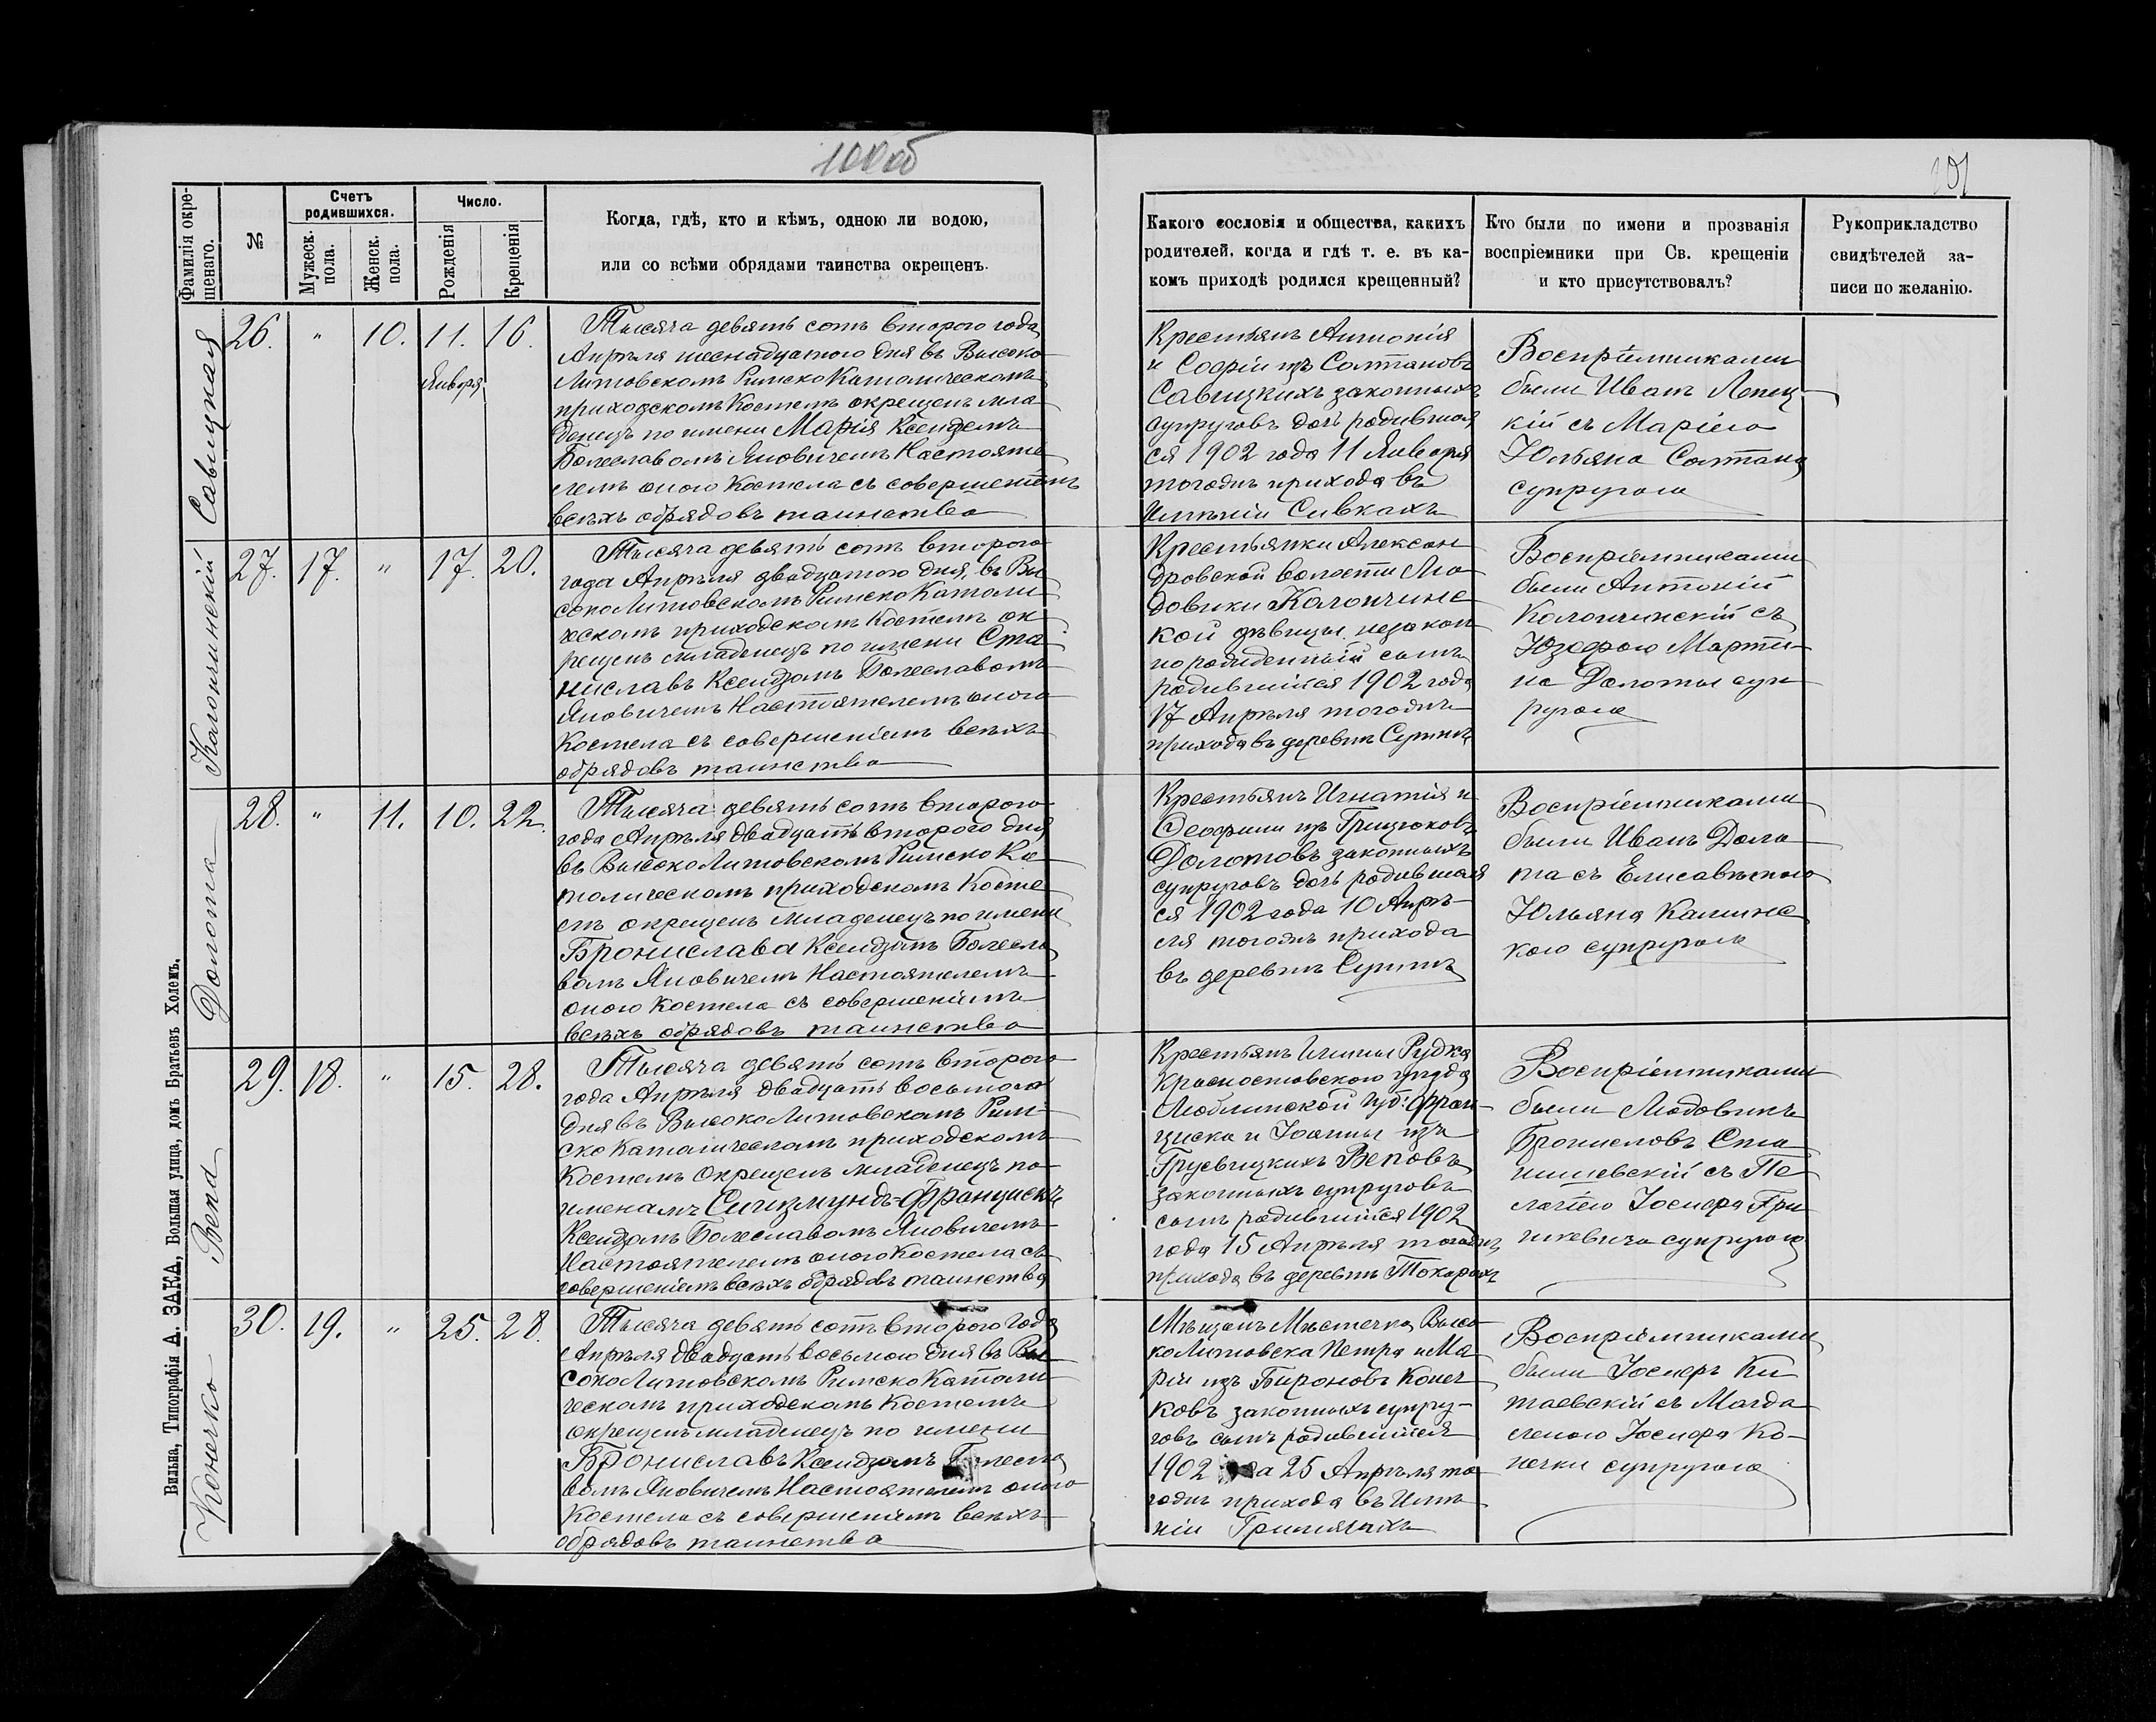 100об
101
Фамилія окре-
щенаго.
№
Счетъ
родившихся.
Мужеск.
пола.
Женск.
пола.
Число.
Рожденія
Крещенія
Когда, гдѣ, кто и кѣмъ, одною ли водою,
или со всѣми обрядами таинства окрещенъ.
Какого сословія и общества, какихъ
родителей, когда и гдѣ т. е. въ ка-
комъ приходѣ родился крещенный?
Кто были по имени и прозванія
воспріемники при Св. крещеніи
и кто присутствовалъ?
Рукоприкладство
свидѣтелей за-
писи по желанію.
Савицкая
26. " 10. 11. 16.
Января
Тысяча девять сотъ второго года
Апрѣля шеснадцатого дня въ Высоко
Литовскомъ Римско Католическомъ
приходскомъ Костелѣ окрещенъ мла
денецъ по имени Марія Ксендзомъ
Болеславомъ Яновичемъ Настояте
лемъ оного Костела съ совершеніемъ
всѣхъ обрядовъ таинства
Крестьянъ Антонія
и Софіи изъ Солтановъ
Савицкихъ законныхъ
супруговъ дочь родившая
ся 1902 года 11 Января
тогоднъ прихода въ
Имѣніи Сивкахъ
Воспріемниками
были Иванъ
кій съ Маріею
Юльяна Солтана
супругою
Калончинскій
27. 17. " 17. 20.
Тысяча девять сотъ второго
года Апрѣля двадцатого дня, въ Вы
соко Литовскомъ Римско Католи
ческомъ приходскомъ Костелѣ ок
рещенъ младенецъ по имени Ста
ниславъ Ксендзомъ Болеславомъ
Яновичемъ Настоятелемъ оного
Костела съ совершеніемъ всѣхъ
обрядовъ таинства
Крестьянки Алексан
дровской волости Лю
довики Калончинс
кой дѣвицы незакон
но рожденный сынъ
родившійся 1902 года
17 Апрѣля тогоднъ
прихода въ деревнѣ
Воспріемниками
были Антоній
Калончинскій съ
Юзефою Марти
на Долоты суп
ругою
Долота
28. " 11. 10. 22.
Тысяча девять сотъ второго
года Апрѣля двадцать второго дня
въ Высоко Литовскомъ Римско Ка
толическомъ приходскомъ Косте
лѣ окрещенъ младенецъ по имени
Бронислава Ксендзомъ Болесла
вомъ Яновичемъ Настоятелемъ
оного Костела съ совершеніемъ
всѣхъ обрядовъ таинства
Крестьянъ Игнатія и
Ѳеофили изъ Грицюковъ
Долотовъ законныхъ
супруговъ дочь родившая
ся 1902 года 10 Апрѣ
ля тогоднъ прихода
въ деревнѣ
Воспріемниками
были Иванъ Доло
та съ Елисаветою
Юльяна Калинс
кого супругою
Вепа
29. 18. " 15. 28.
Тысяча девять сотъ второго
года Апрѣля двадцать восьмого
дня въ Высоко Литовскомъ Рим-
ско Католическомъ приходскомъ
Костелѣ Окрещенъ младенецъ по
именамъ Сигизмундъ-Францискъ
Ксендзомъ Болеславомъ Яновичемъ
Настоятелемъ оного Костела съ
совершеніемъ всѣхъ обрядовъ таинства
Крестьянъ Гмины Рудка
Красноставского уѣзда
Люблинской губ: Фран-
циска и Іоанны изъ
Грусвицкихъ Веповъ
законныхъ супруговъ
сынъ родившійся 1902
года 15 Апрѣля тогоднъ
прихода въ деревнѣ Токарахъ
Воспріемниками
были Людовикъ
Брониславъ Ста
нишевскій съ Пе
лагіею Іосифа Гри
шкевича супругою
Конечко
30. 19. " 25. 28.
Тысяча девять сотъ второго года
Апрѣля двадцать восьмого дня въ Вы
соко Литовскомъ Римско Католи
ческомъ приходскомъ Костелѣ
окрещенъ младенецъ по имени
Брониславъ Ксендзомъ Болесла
вомъ Яновичемъ Настоятелемъ оного
Костела съ совершеніемъ всѣхъ
обрядовъ таинства
Мѣщанъ Мѣстечка Высо
ко Литовска Петра и Ма
ріи изъ Бироновъ Конеч
ковъ законныхъ супру-
говъ сынъ родившійся
1902 года 25 Апрѣля то
годнъ прихода въ Имѣ
ніи
Воспріемниками
были Іосифъ Ки
таевскій съ Магда
леною Іосифа Ко-
нечки супругою
Вильна, Типографія А. ЗАКА, Большая улица, домъ Братьевъ Холемъ.